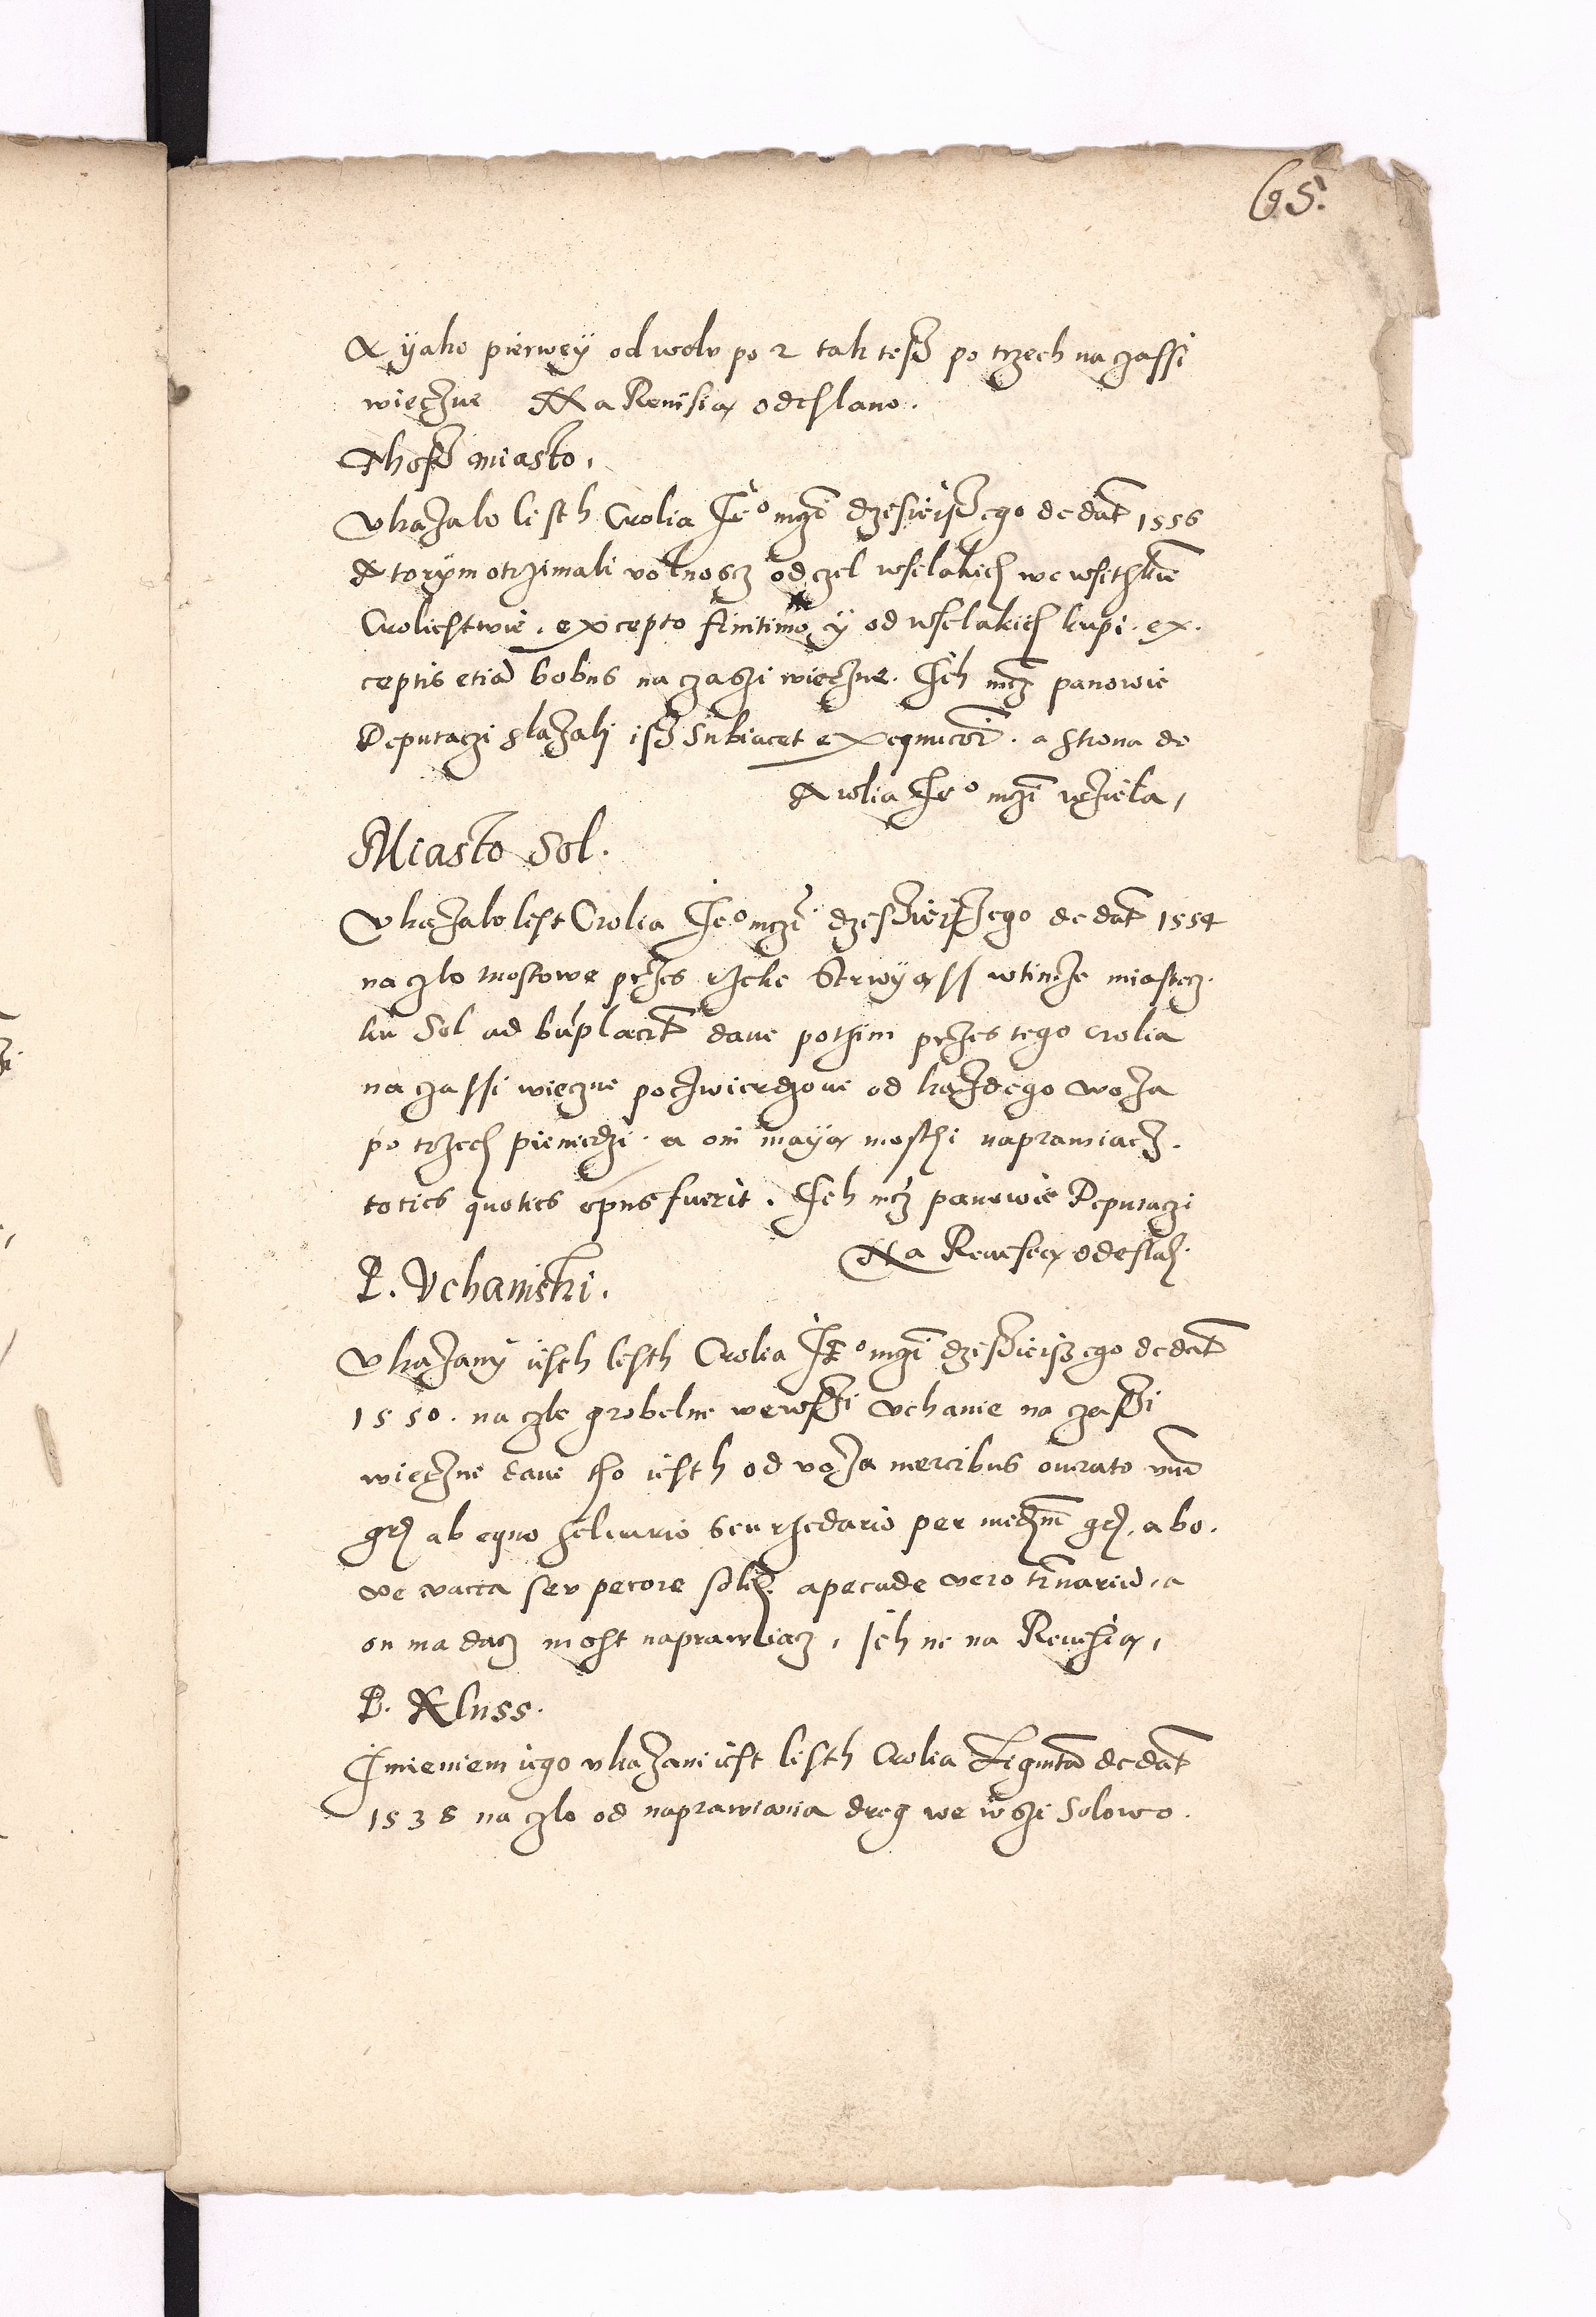 65.
A yako pierwey od wolv po 2 tak tesz po trzech na czassi
wieczne Na Revisią odeslano.
Thosz miasto.
Vkazalo listh Crolia Je° mczi dzesieiszego de dat 1556
Ktorym otrzimali volnoscz od czel wselakich we wsithkie
Croliestwie. excepto finitimo y od wselakich kupi. ex.
ceptis etia bobus na czaszi wieczne. Jch mcz panowie
Deputaczi skazali isz Subiacet exequutioi. a strona do
Krolia Je° mczi wzieła,
Miasto Sol.
Vkazalo list Crolia Je° mczi dzesieiszego de dat 1554
na czlo mostowe przes rzeke Strwyąss w timze miastecz.
ku Sol ad bnplacit dane pothim przes tego Crolia
na czassi wieczne poczwierdzone od kazdego woza
po trzech pieniedzi. a oni mayą mosthi naprawiacz.
toties quoties opus fuerit. Jch mcz panowie Deputaczi
Na Revisią odeslali.
P. Vchanski.
Vkazany iesth listh Crolia Je° mczi dzesieiszego de dat
1550. na czlo grobelne we wszi Vchanie na czaszi
wieczne dane tho iesth od voza mercibus onerato vnu
grs ab equo seu rzedario per mediu grs. a bo.
ve vacca seu pecore solid. a pecude vero trnariu. a
on ma dacz most naprawiacz. Jch m na Revisią,
P. Kluss.
Jmieniem iego vkazani iest listh Crolia Zigmta de dat
1538 na czlo od naprawiania drog we wszi Solowo.